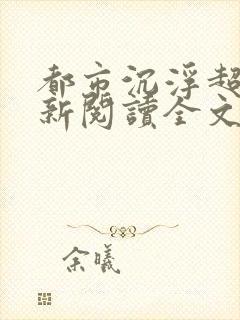 都市沉浮超
新閱讀全文
余曦